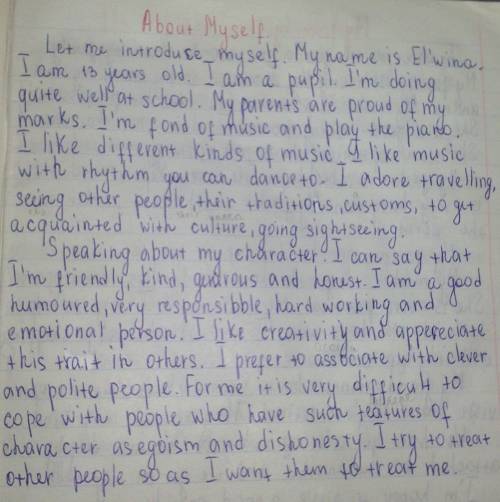 About Myself.
Let me introduce myself. My name is El'wina.
I am 13 years old. I am a pupil. I'm doing
quite well at school. My parents are proud of my
marks. I'm fond of music and play the piano.
I like different kinds of music. I like music
with rhythm you can dance to. I adore travelling,
seeing other people, their traditions, customs, to get
acquainted with culture, going sightseeing.
Speaking about my character. I can say that
I'm friendly, kind, generous and honest. I am a good
humoured, very responsibble, hard working and
emotional person. I like creativity and appereciate
this trait in others. I prefer to associate with clever
and polite people. For me it is very difficult to
cope with people who have such features of
character as egoism and dishonesty. I try to treat
other people so as I want them to treat me.